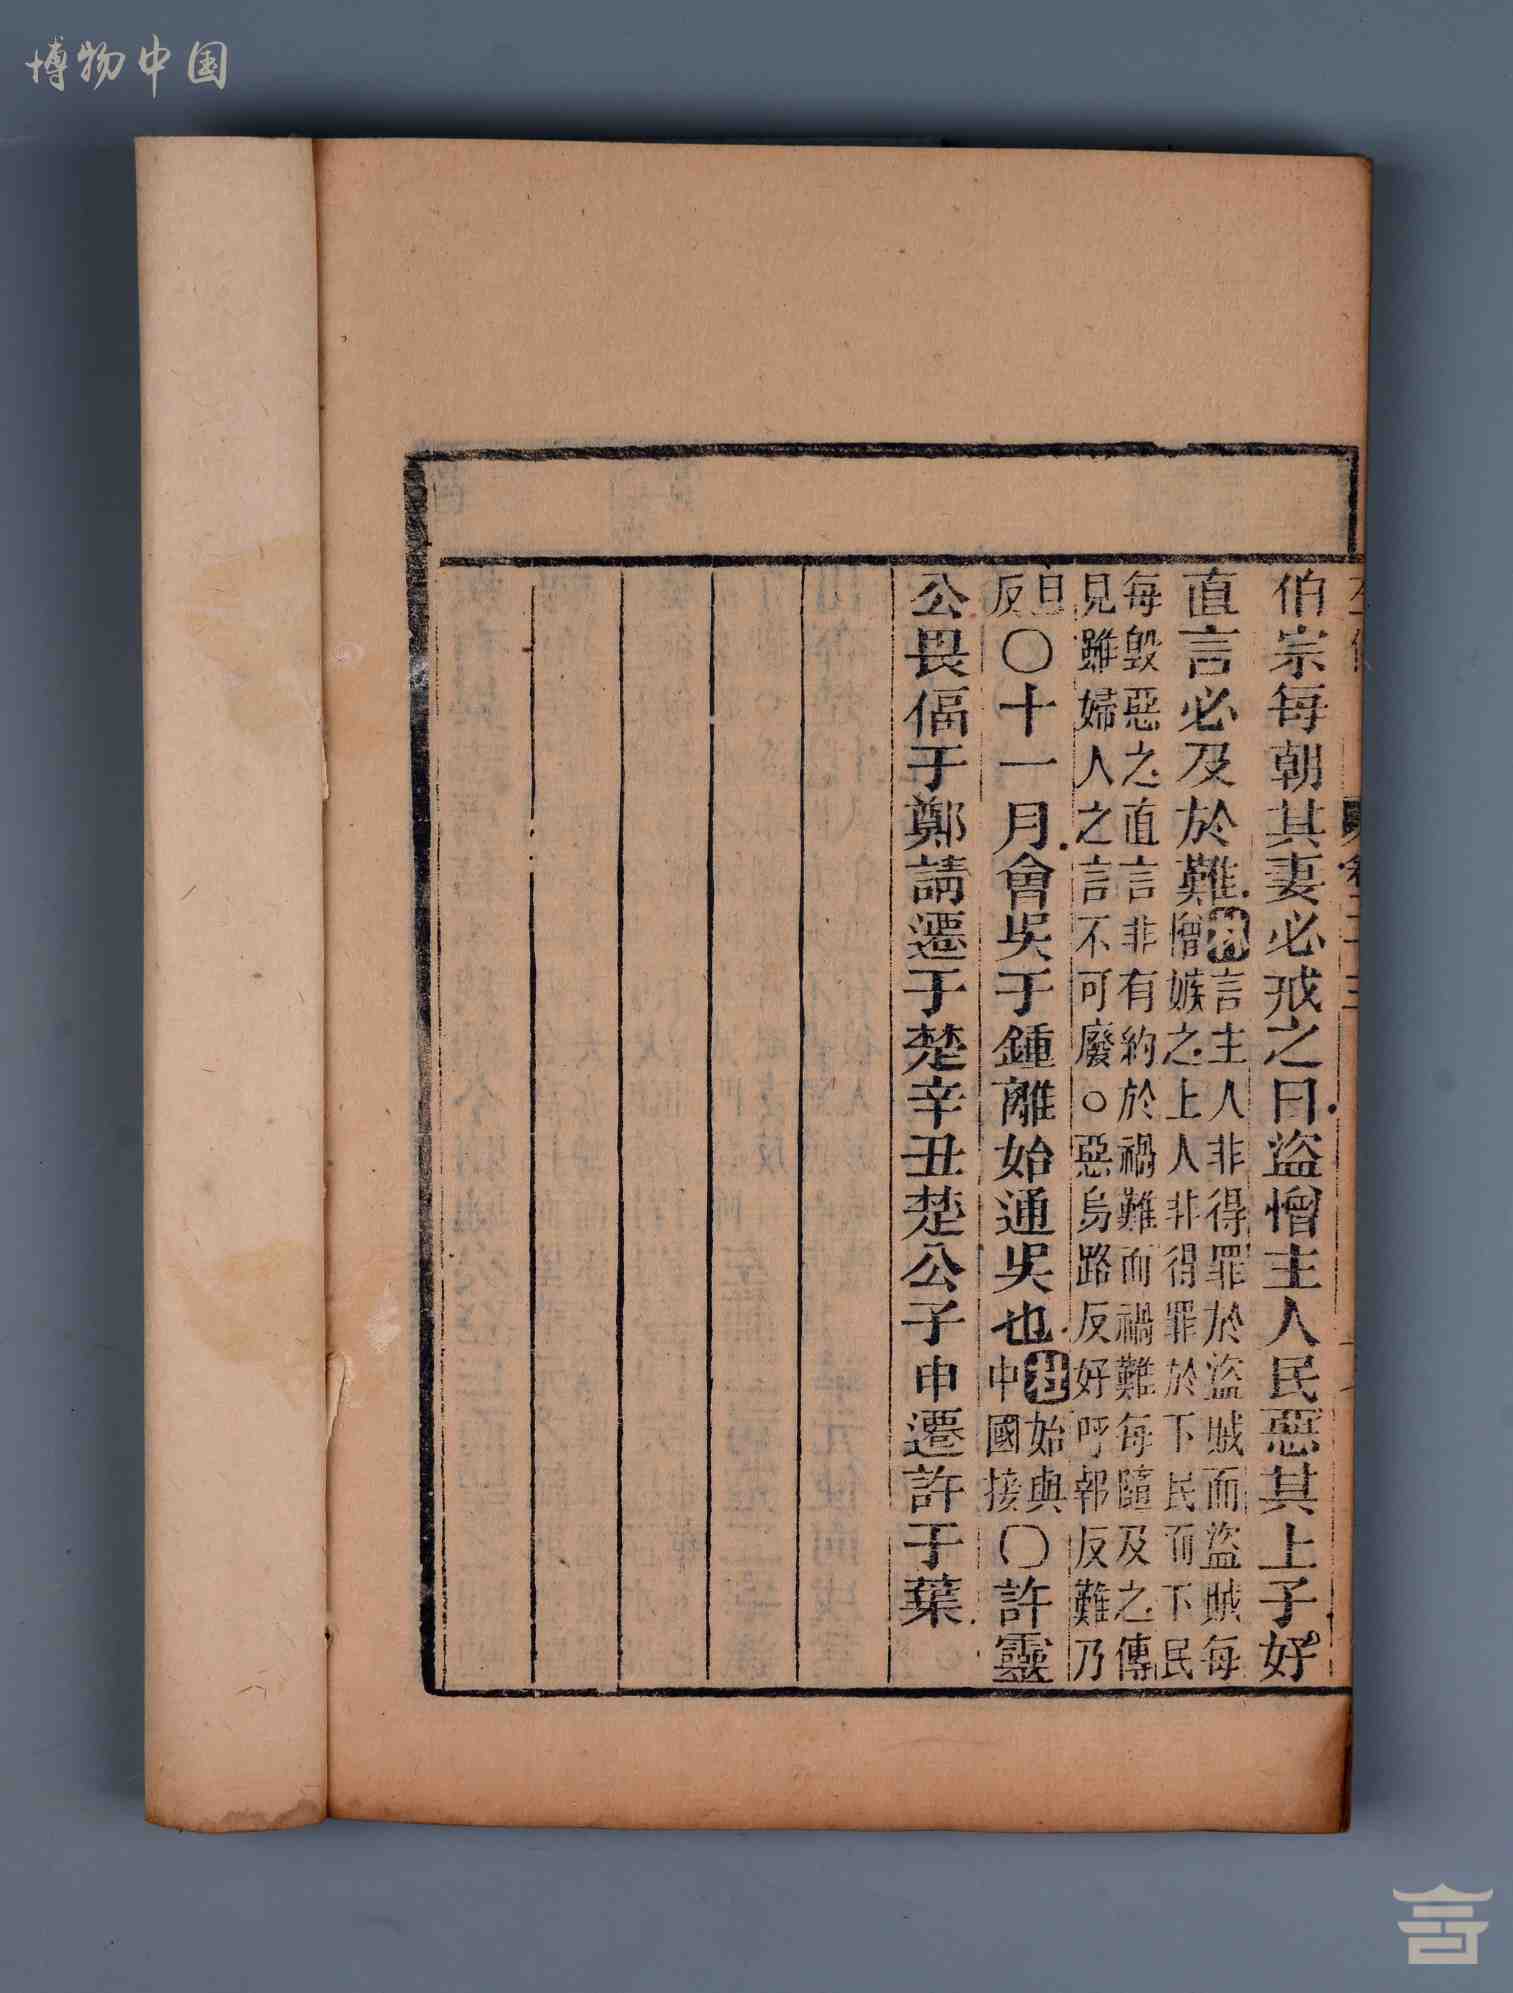 博物中国
伯宗每朝其妻必戒之曰盜憎主人民惡其上子好
直言必及於難
言主人非得罪於盜賊而盜賊每
憎嫉之上人非得罪於下民而下民
每毀惡之直言非有約於禍難而禍難每隨及之傳
見雖婦人之言不可廢○惡烏路反好呼報反難乃
旦
反
○十一月會吳于鍾離始通吳也
杜始與
中國接
○許靈
公畏偪于鄭請遷于楚辛丑楚公子申遷許于葉